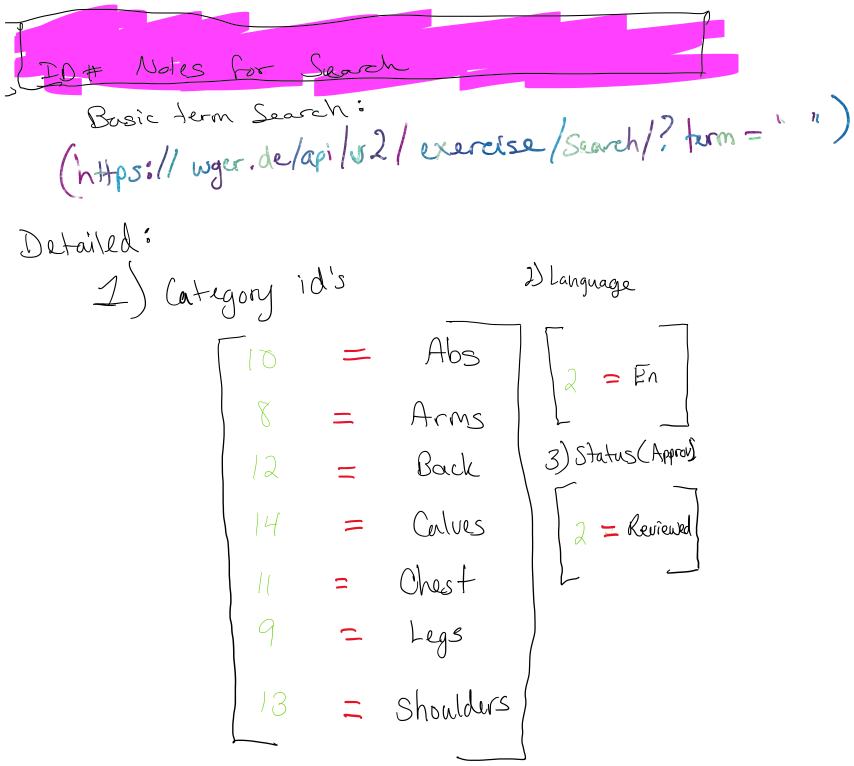 ID # Notes for Search
Basic term Search:
(https://wger.de/api/v2/exercise/search/?term=" ")
Detailed:
1) Category id's
10 = Abs
8 = Arms
12 = Back
14 = Calves
11 = Chest
9 = Legs
13 = Shoulders
2) Language
2 = En
3) Status (Approv)
2 = Reviewed